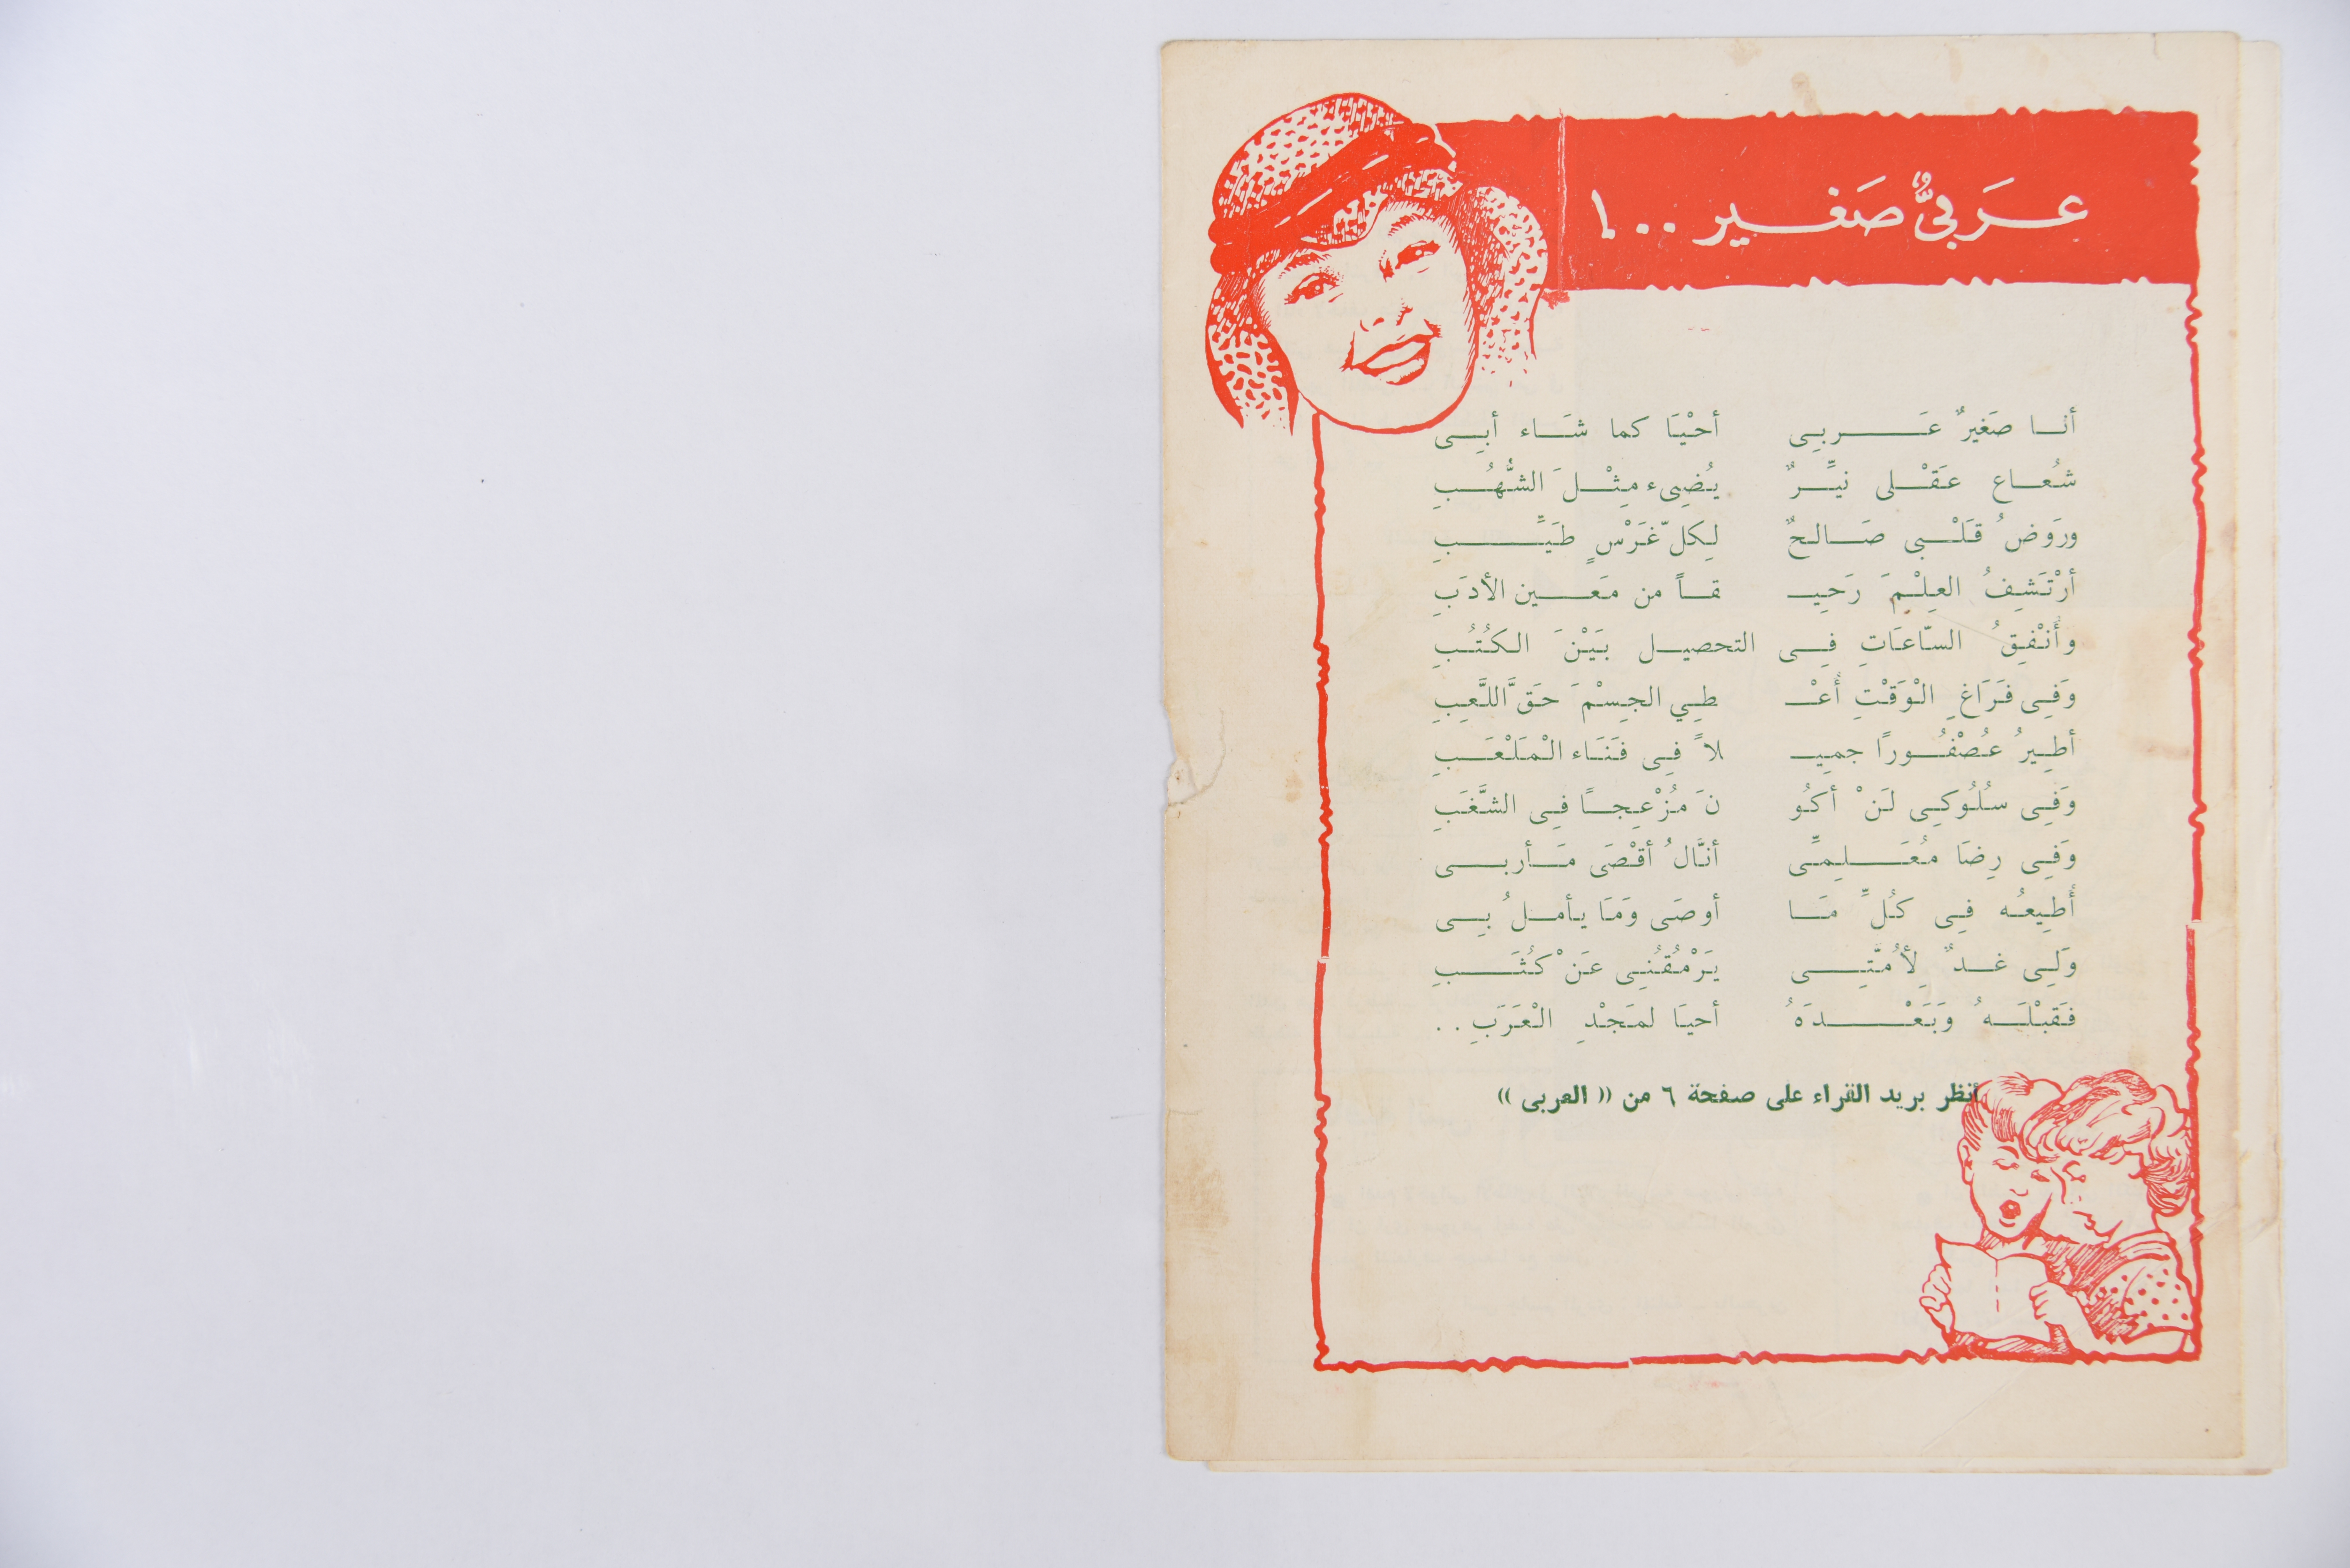 عَرَبيٌّ صَغير ..!
أنا صَغيرٌ عَربى أحْيَا كما شَاء أبِى
شُعاع عَقْلى نيِّرٌ يُضِىء مِثْلَ الشُّهُبِ
ورَوَضُ قَلْبى صَالحٌ لِكلّ غَرْسٍ طَيِّبِ
أرْتَشِفُ العِلْمَ رَحِيـ ـقاً من مَعين الأدَبِ
وأَنْفِقُ السّاعَاتِ فِى التحصيل بَيْنَ الكُتُبِ
وَفِى فَرَاغِ الْوَقْتِ أُعْـ ـطِي الجِسْمَ حَقَّ اللَّعِبِ
أطِيرُ عُصْفُورًا جمِيـ ـلاً فِى فَنَاء الْمَلْعَبِ
وَفِى سُلُوكِى لَنْ أكُو نَ مُزْعِجًا فِى الشَّغَبِ
وَفِى رِضَا مُعَلِمِّى أنَّالُ أقْصَى مَأربى
أُطِيعُه فِى كُلِّ مَا أوصَى وَمَا يأملُ بِى
وَلِى غدٌ لِأُمَّتِى يَرْمُقُنِى عَنْ كُثَبِ
فَقَبْلَهُ وَبَعْدَهُ أحيَا لمَجْدِ الْعَرَبِ ..
أنظر بريد القراء على صفحة ٦ من (( العربى ))